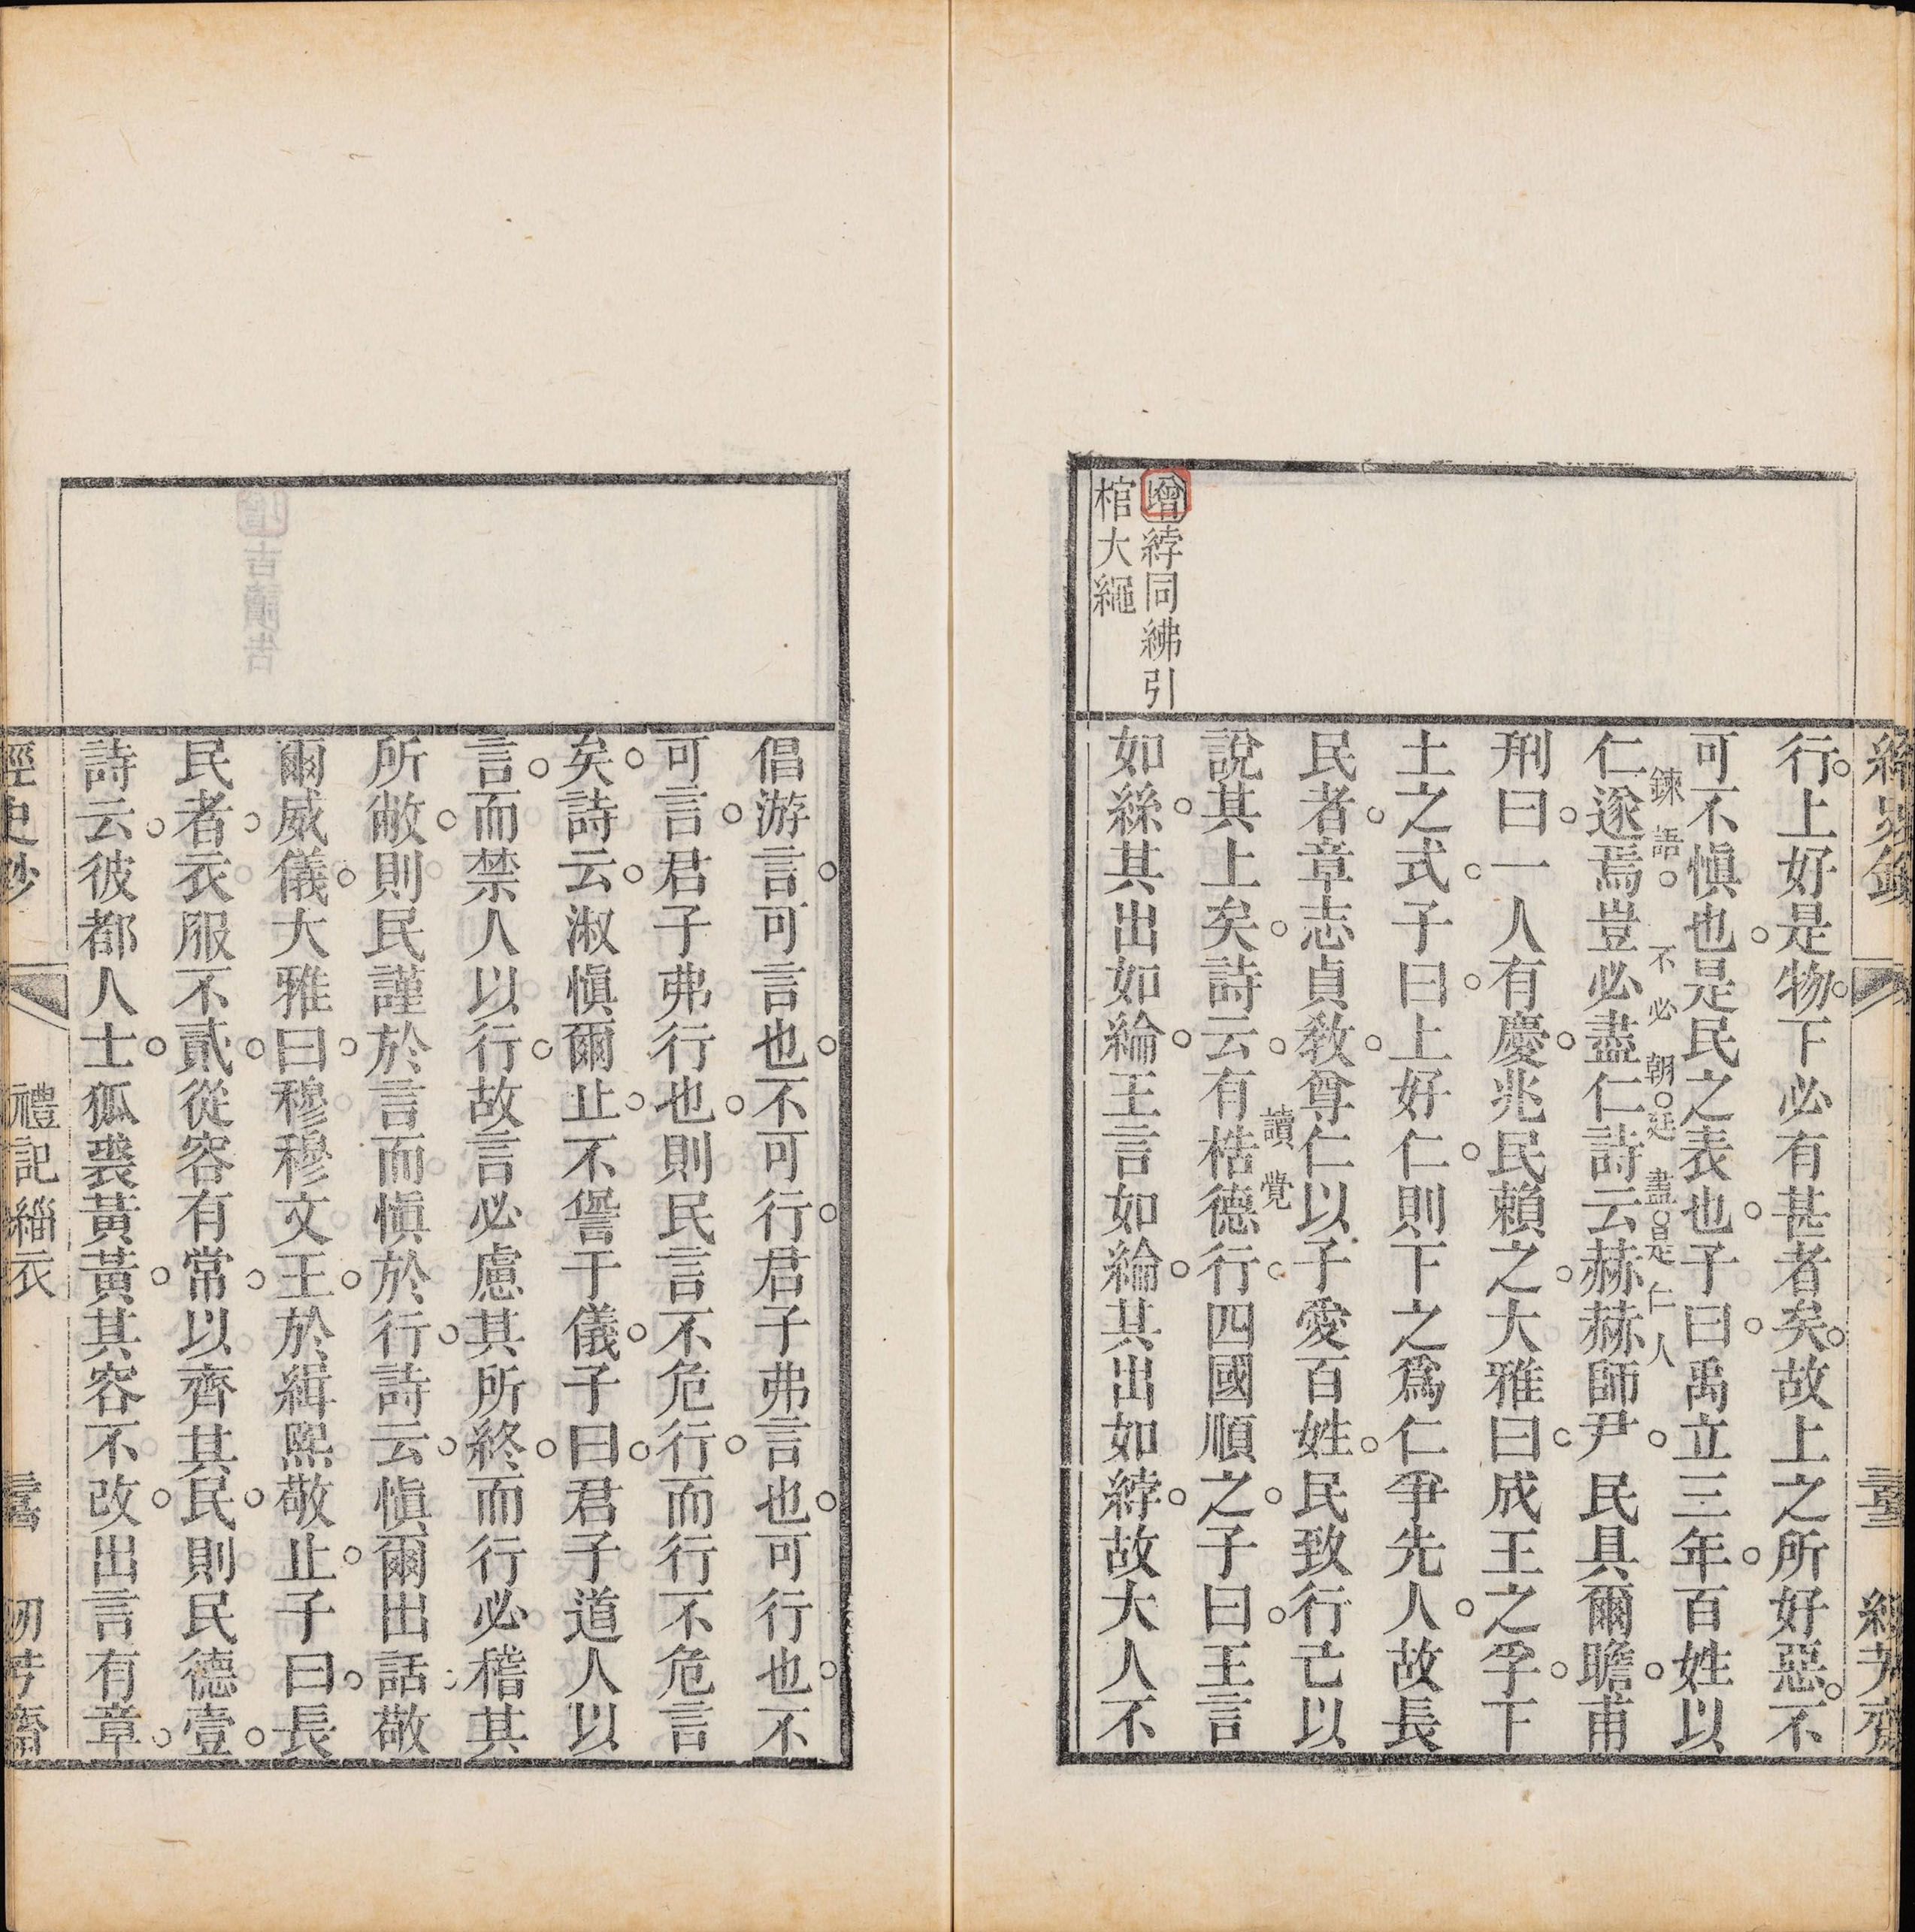 行上好是物下必有甚者矣故上之所好惡不
可不愼也是民之表也子曰禹立三年百姓以
鍊語 不必朝廷盡是仁人
仁遂焉豈必盡仁詩云赫赫師尹民具爾瞻甫
刑曰一人有慶兆民賴之大雅曰成王之孚下
土之式子曰上好仁則下之爲仁爭先人故長
民者章志貞敎尊仁以子愛百姓民致行己以
讀覺
說其上矣詩云有梏德行四國順之子曰王言
如絲其出如綸王言如綸其出如綍故大人不
增綍同紼引
棺大繩
倡游言可言也不可行君子弗言也可行也不
可言君子弗行也則民言不危行而行不危言
矣詩云淑愼爾止不諐于儀子曰君子道人以
言而禁人以行故言必慮其所終而行必稽其
所敝則民謹於言而愼於行詩云愼爾出話敬
爾威儀大雅曰穆穆文王於緝熙敬止子曰長
民者衣服不貳從容有常以齊其民則民德壹
詩云彼都人士狐裘黃黃其容不改出言有章
經史鈔 禮記緇衣